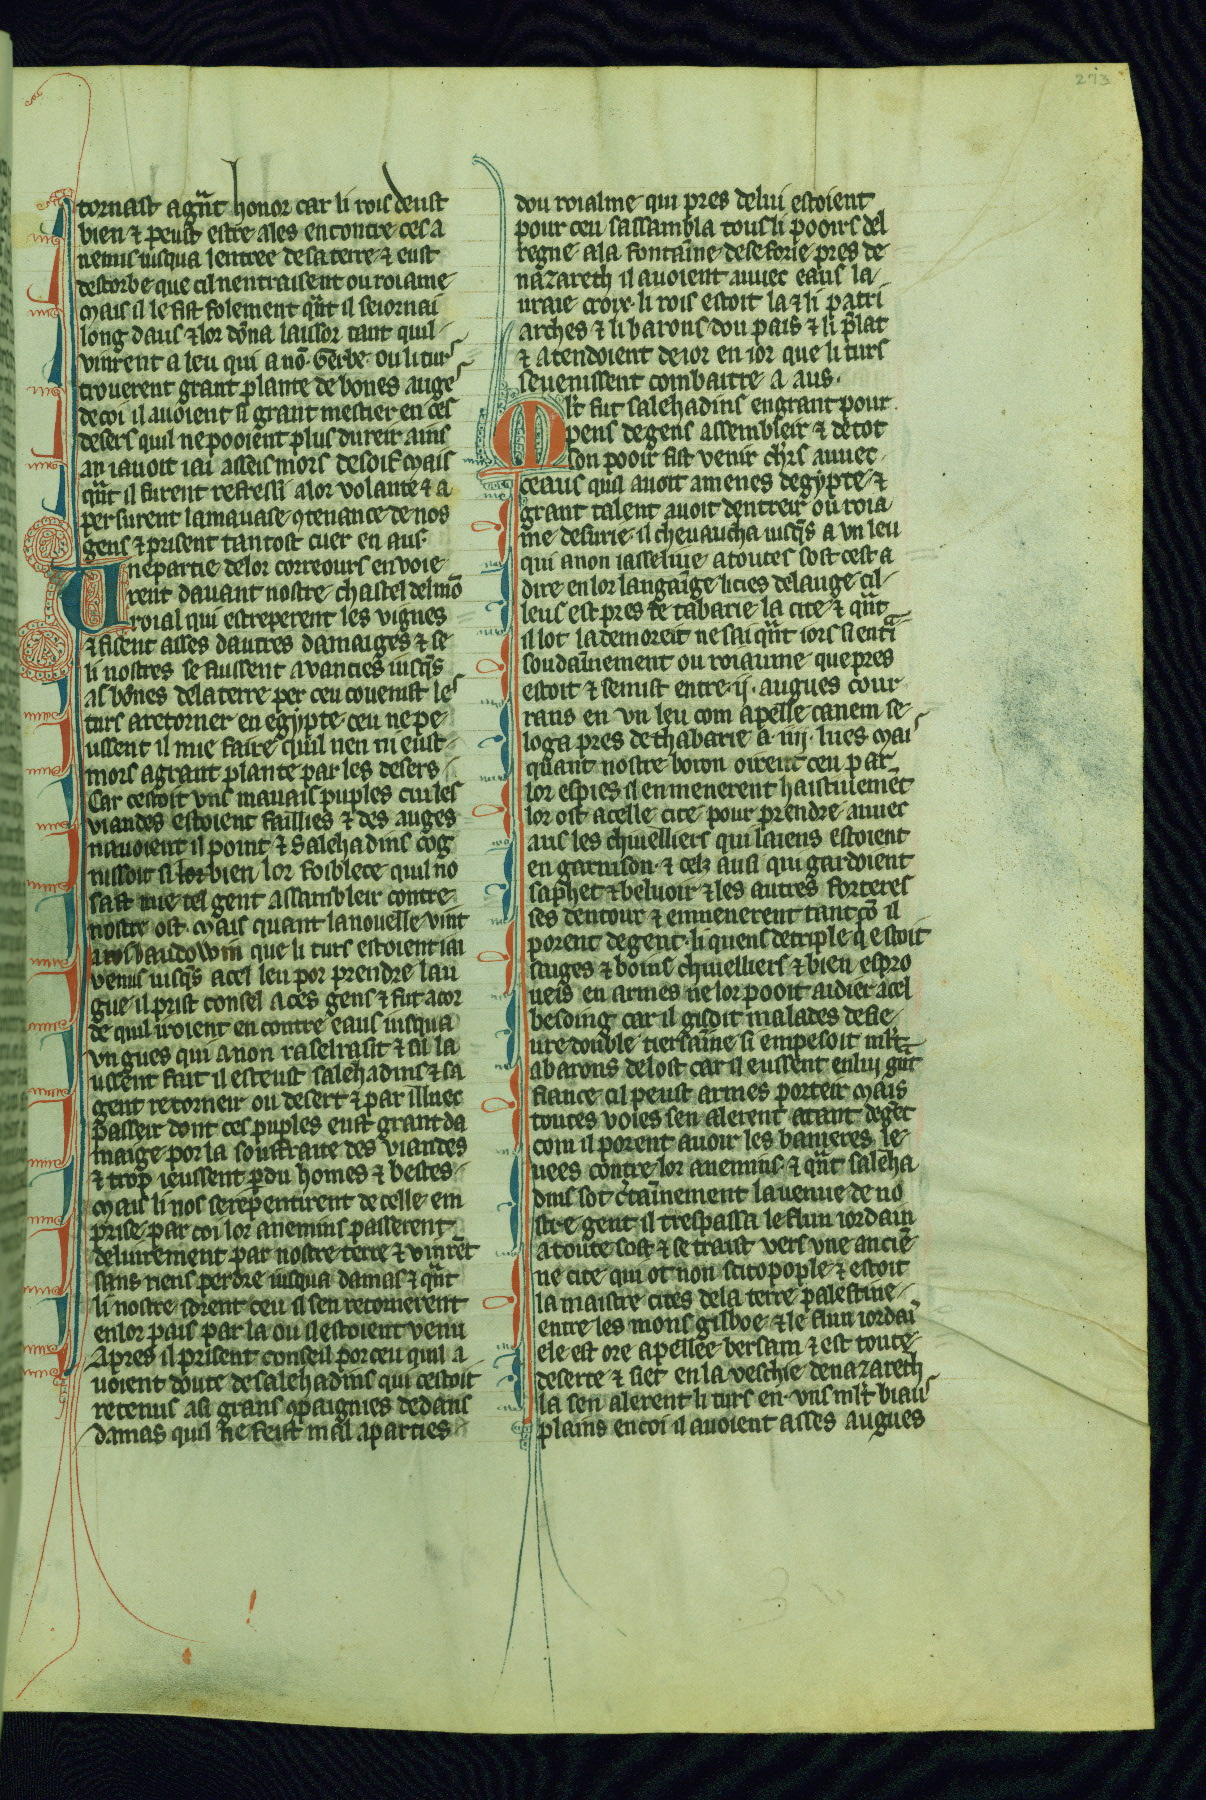 273
tornast a gñt honor car li rois deust
bien & peust estre ales encontre ces a
nemis iusqua lentree de sa terre & eust
destorbe que cil nentraisent ou roiame
Mais il le fist folement qñt il seiornai
long daus & lor dõna laissor tant quil
vinrent a leu qui a nõ Gerbe ou li tur
trouerent grant plante de bones auge
de coi il auoient si grant mestier en ces
desers quil ne pooient plus dureir ains
an i auoit iai asseis mors de soif Mais
qñt il furent refressi a lor volante & a
persurent la mauase ꝯtenance de nos
gens & prisent tantost cuer en aus.
Vne partie de lor correours en voie
rent dauant nostre chastel del mõ
roial qui estreperent les vignes
& fisent asses dautres damaiges & se
li nostres se fussent auancies iusq̃s
as bõnes de la terre per ceu couenist les
turs a retorner en egypte ceu ne pe
ussent il mie faire quil nen ni eust
mors a grant plante par les desers
Car cestoit vns mauais puples cui les
viandes estoient faillies & des auges
nauoient il point & Salehadins cog
nissoit si bien lor foiblece quil no
sast mie tel gent assambleir contre
nostre ost. Mais quant la nouelle vint
a roi baudowin que li turs estoient iai
venus iusq̃s a cel leu por prendre lau
gue il prist consel a ces gens & fut acor
de quil iroient en contre eaus iusqua
vn gues qui a non raselrasit & sil la
ussent fait il esteust salehadins & sa
gent retorneir ou desert & par illuec
passeir dont ces puples eust grant da
maige por la souffraite des viandes
& trop ieussent ꝑdu homes & bestes
Mais li nos se repentirent de celle em
prise par coi lor anemins passerent
deliurement par nostre terre & vinrẽt
sans riens perdre iusqua damas & qñt
li nostre sorent ceu si sen retornerent
en lor pais par la ou il estoient venu
Apres il prisent conseil por ceu quil a
uoient doute de salehadins qui cestoit
retenus a si grans ꝯpaignies dedans
damas quil ne feist mal a parties
dou roialme qui pres de lui estoient
pour ceu sassambla tous li pooirs del
regne a la fontainne de seforie pres de
nazareth il auoient auuec eaus la
uraie croix. li rois estoit la & li patri
arches & li barons dou pais & li p̃lat
& atendoient de ior en ior que li turs
se uenissent combattre a aus.
Mlt fut salehadins en grant pour
pens de gens assembleir & de tot
son pooir fist venir ch̃rs auuec
ceaus quil auoit amenes degypte &
grant talent auoit dentreir ou roia
me de surie il cheuaucha iusq̃s a vn leu
qui a non iasseliue a toutes sost cest a
dire en lor langainge li cies de lauge cil
leus est pres de tabarie la cite & qñt
il lot la demoreit ne sai qñt iors si entr̃
soudainnement ou roiaume que pres
estoit & se mist entre .ij. augues cour
rans en vn leu com apelle canem se
loga pres de thabarie a .iiij. lues Mai
quant nostre boron oirent ceu par
lor espies il enmenerent haistiuemẽt
lor ost a celle cite pour prendre auuec
aus les chiuelliers qui laiens estoient
en garnison. & celz ausi qui gardoient
saphet & beluoir & les autres forteres
ses dentour & enmenerent tant cõ il
porent de gent. li quens de triple q̃ estoit
saiges & boins chiuelliers & bien espro
ueis en armes ne lor pooit aidier a cel
besoing car il gisoit malades de fie
ure double tiersainne si empesoit mlt
a barons de lost car il eussent en lui gñt
fiance cil peust armes porteir Mais
toutes voies sen alerent atant de gẽt
com il porent auoir les banieres le
uees contre lor anemins. & qñt saleha
dins sot c̃tainnement la uenue de no
stre gent il trespassa le flun iordain
a toute sost & se traist vers vne anciẽ
ne cite qui ot non scitopople & estoit
la maistre cites de la terre palestine
entre les mons gilboe & le flun iordai
ele est ore apellee bersam & est toute
deserte & siet en la veschie de nazareth
la sen alerent li turs en vns mlt biaus
plains en coi il auoient asses augues